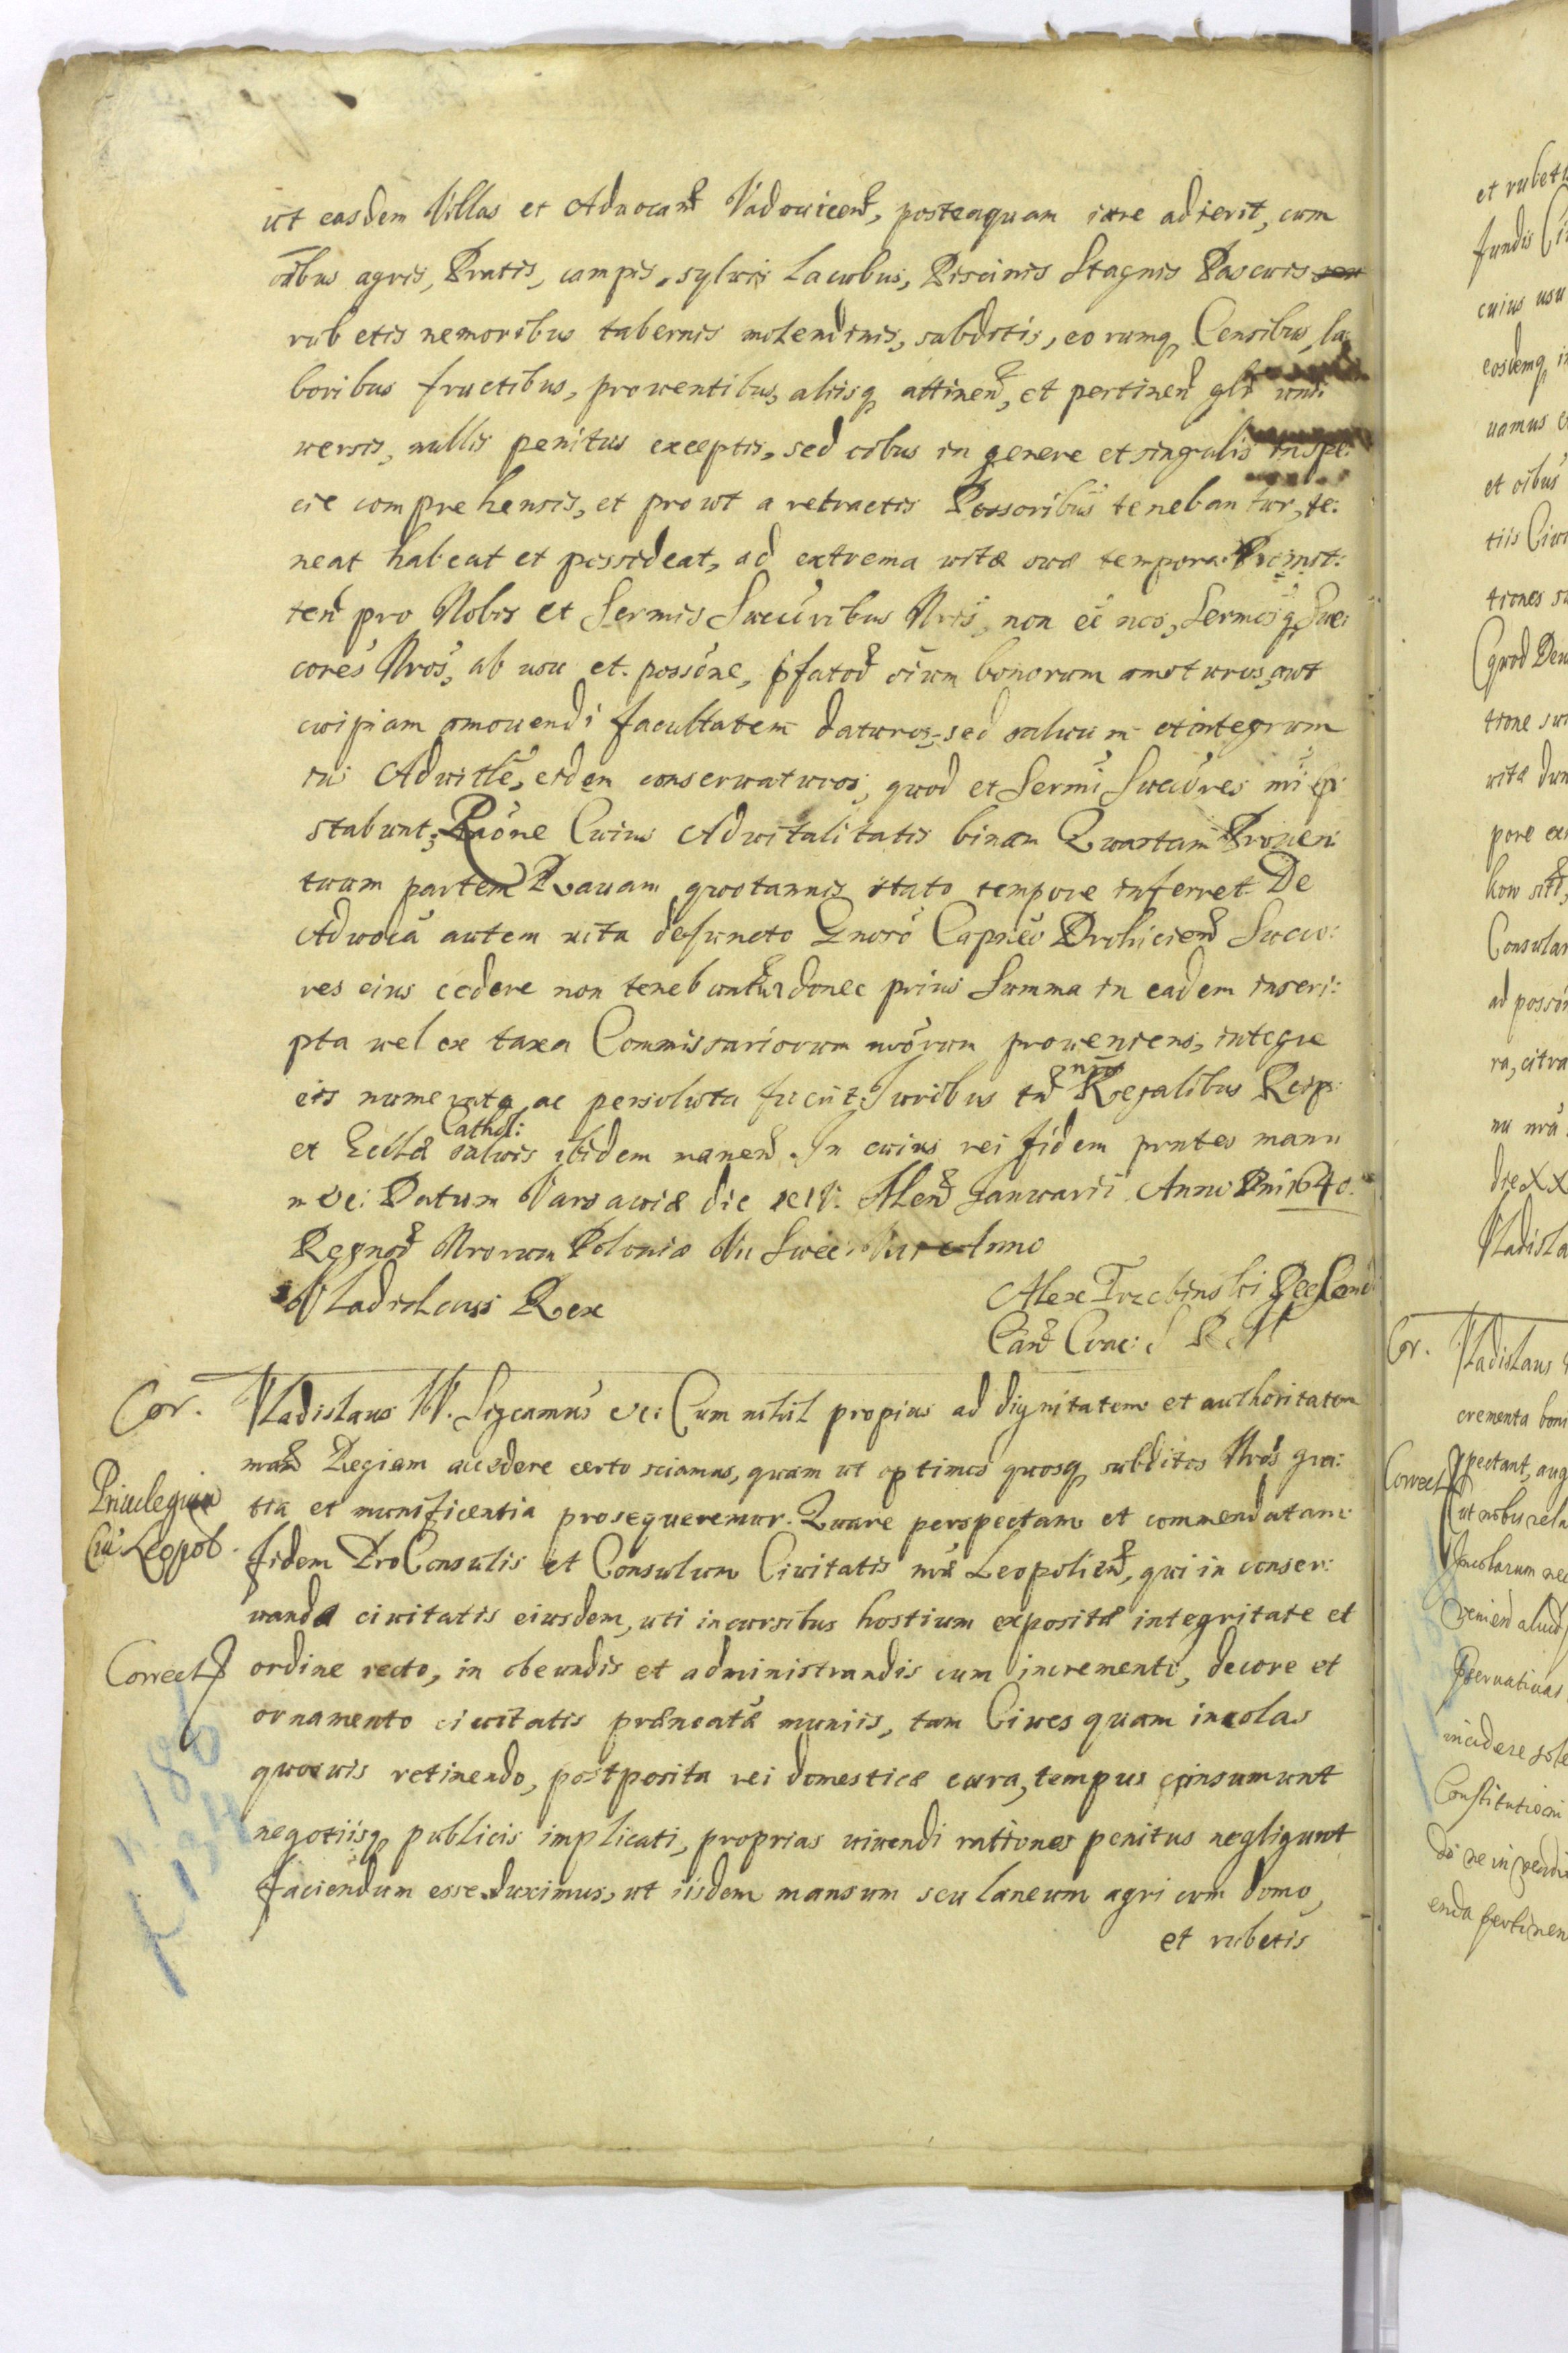 ut easdem Villas et Advocañ Vadovicen̄, posteaquam iure adierit, cum
oībus agris, Pratis, campis, sylvis Lacubus, Piscinis Stagnis Pascuis
rubetis nemoribus tabernis molendinis, subditis, eorumq Censibus, la
boribus fructibus, proventibus, aliisq attinen̄, et pertinen̄ glr uni
versis, nullis penitus exceptis, sed oibus in genere et singulis in spe:
cie comprehensis, et prout a retroactis Possoribus tenebantur, te:
neat habeat et possideat, ad extrema vitæ suæ tempora. Promit:
ten̄ pro Nobis et Sermis Succúribus Nris, non eé nos, Sermosq Suc:
cores Nros, ab usu et possóne, pfator̄ oium bonorum amoturos, aut
cuipiam amovendi facultatem daturos, sed salvum et integrum
ius Advitle, eidem conservaturos, quod et Sermi Succóres nri p:
stabunt; Raóne Cuius Advitalitatis binam Quartam Proven:
tuum partem Ravam quotannis stato tempore inferret. De
Advocā autem vita defuncto Gnoso Capneo Drohicien̄ Succo:
res eius cedere non tenebuntur donec prius Summa in eadem inscri:
pta vel ex taxa Commissariorum nrórum proveniens, integre
eis numerata, ac persoluta fuerit. Juribus tn̄ nris Regalibus Reip:
et Ecclæ Cathol: salvis ibidem manen̄. In cuius rei fidem pntes manu
n &c: Datum Varsaviæ die XIV. Men̄ Januarii Anno Dni 1640.
Regnor̄ Nrorum Poloniæ VII Sveciæ VIII Anno
Vladislaus Rex
Alex Trzebinski Regens
Can̄ Cur: S R M
Cor. Vladislaus IV. Sigcamus &c: Cum nihil propius ad dignitatem et authoritatem
nram̄ Regiam accedere certo sciamus, quam ut optimos quosq subditos Nros gra:
Privilegium
Ciū Leopol.
tia et munificentia prosequeremur. Quare perspectam et commendatam
fidem ProConsulis et Consulum Civitatis nræ Leopolien̄, qui in conser:
vanda civitatis eiusdem, uti incursibus hostium expositæ integritate et
Correct
ordine recto, in obeundis et administrandis cum incremento, decore et
ornamento civitatis prænotatæ muniis, tam Cives quam incolas
quosvis retinendo, postposita rei domesticæ cura, tempus consumunt
negotiisq publicis implicati, proprias vivendi rationes penitus negligunt
faciendum esse duximus, ut iisdem mansum seu laneum agri cum domo,
et rubetis
n 180
K 134
et rubet
fundis
cuius usu
eosdemq
vamus
et oibus
tiis Civi
tiones
Quod
tione
vitæ dum
pore
kow
Consular
ad possó
ra, citra
nu nrā
die XX
Vladisla
Cor. Vladislaus
crementa boni
Correct
pectant, aug
ut nobis rela
Incolarum nec
venien̄ aliud
servativas
incidere sole
Constitutioni
do ne in vendi
enda pertinen